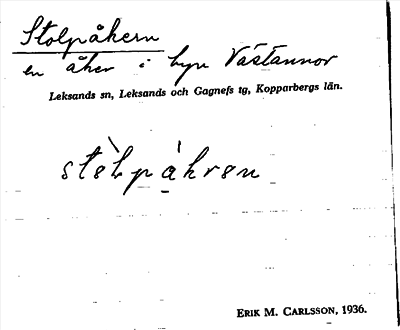 Stolpåkern
en åker i byn Västannor
Leksands sn, Leksands och Gagnefs tg, Kopparbergs län.
stèlpákren
ERIK M. CARLSSON, 1936.